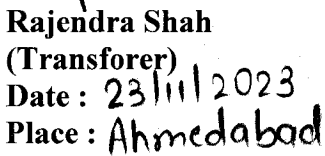 Rajendra Shah
(Transforer)
Date : 23/11/2023
Place : Ahmedabad